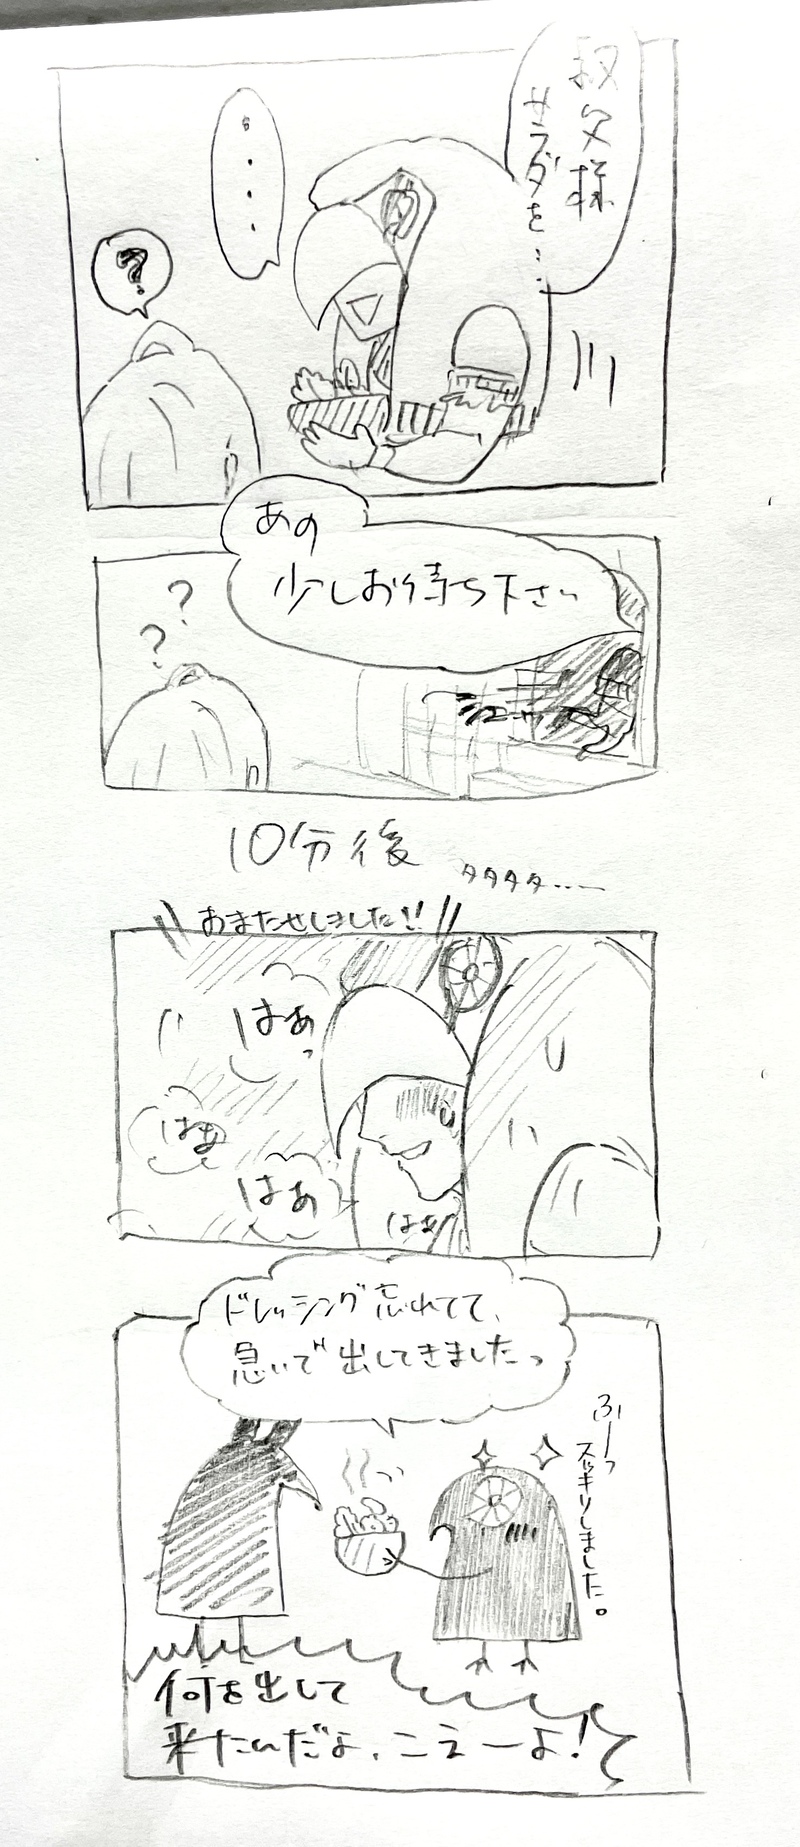 叔父様
サラダを……
・・・・・
?
あの
少しお待ち下さい
?
?
10分後
タタタタ……
おまたせしました!!
はぁっ
はぁ
はぁ
はぁ
ドレッシング忘れてて、
急いで出してきましたっ
ふーっ
スッキリしました。
何を出して
来たんだよ、こえーよ!